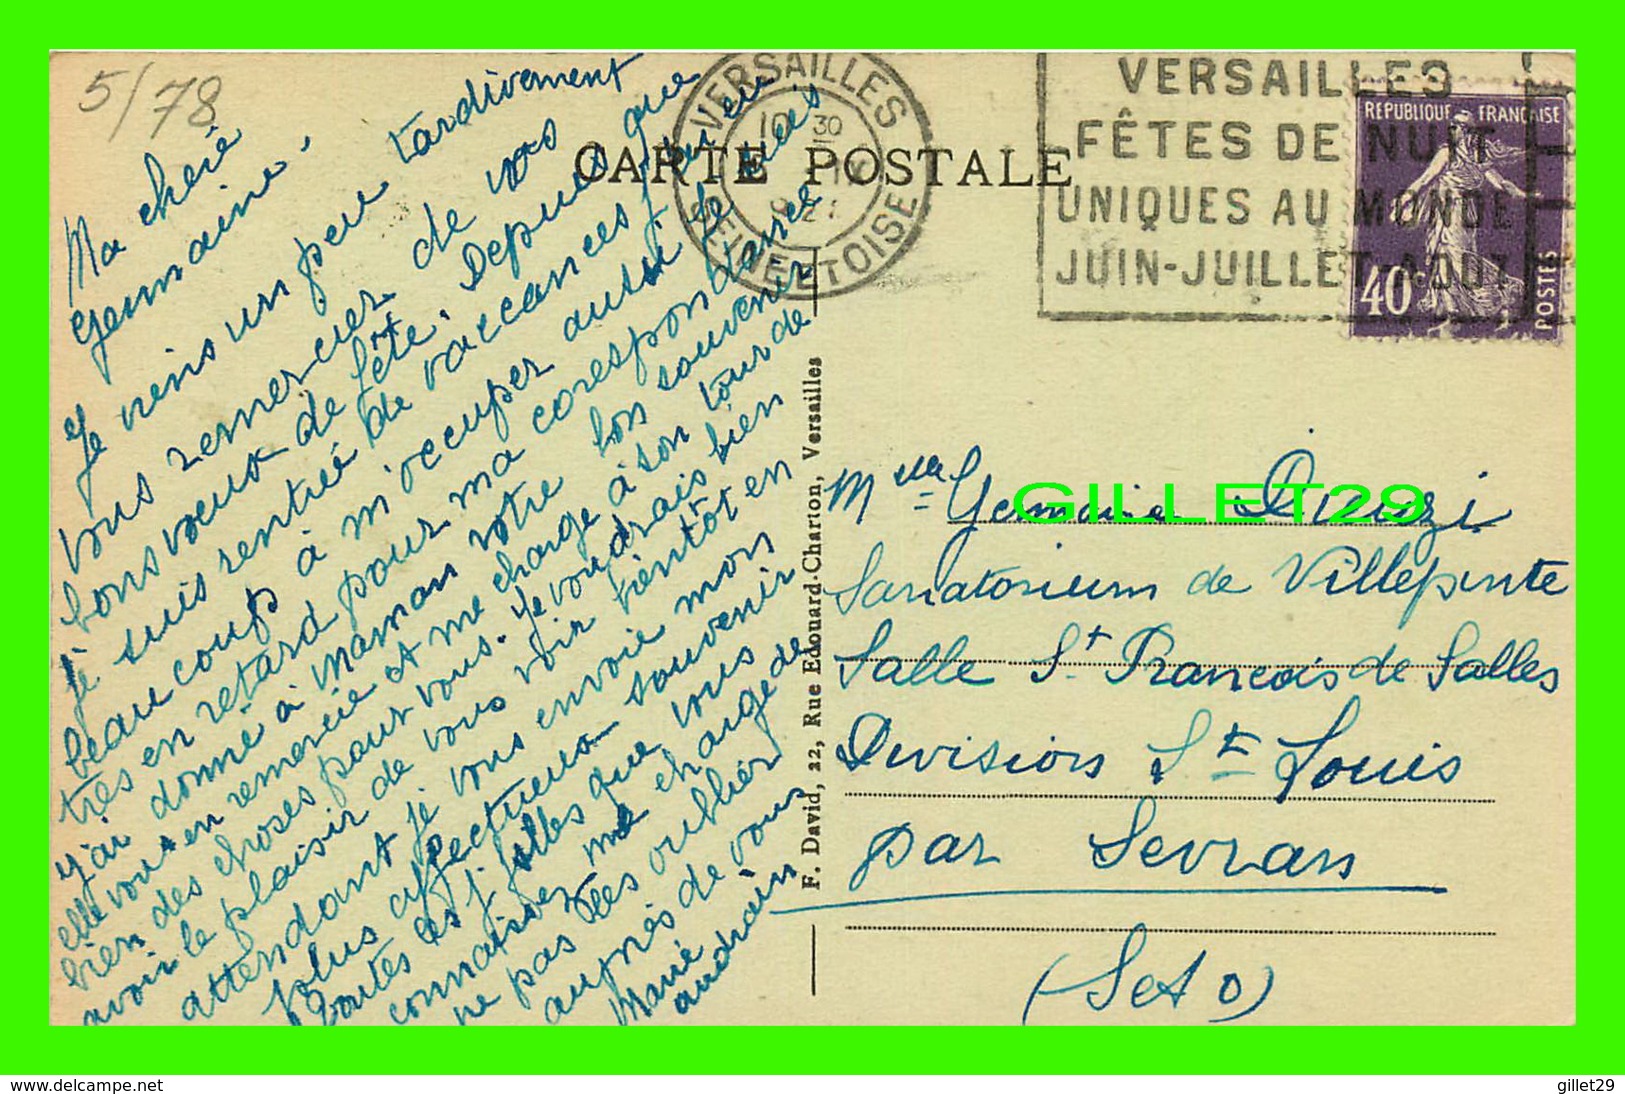 5/78
Ma cherie
Germaine.
Je viens un peu tardivement
vous remercier de vos
bons voeux de fête. Depuis que
je suis rentrée de vaccances j'ai eu
beaucoup à m'occuper aussi je suis
très en retard pour ma corespondance
j'ai donné à maman votre bon souvenir
elle vous en remercie et me charge à son tour de
bien des choses pour vous. Je voudrais bien
avoir le plaisir de vous voir bientôt en
attendant je vous envoie mon
plus affectueux souvenir
toutes les j. filles que vous
connaissez me charge de
ne pas les oublier
auprès de vous
Marie
audrain
CARTE POSTALE
VERSAILLES
10 30
IX
SEINE-ET-OISE
VERSAILLES
FÊTES DE NUIT
UNIQUES AU MONDE
JUIN-JUILLET-AOUT
REPUBLIQUE FRANÇAISE
40c
POSTES
F. David, 22, Rue Edouard-Charton, Versailles
Melle Germaine
GILLET29
Sanatorium de Villepinte
Salle St Francois de Salles
Division St Louis
par Sevran
(S et O)
Delcampe.net
gillet29